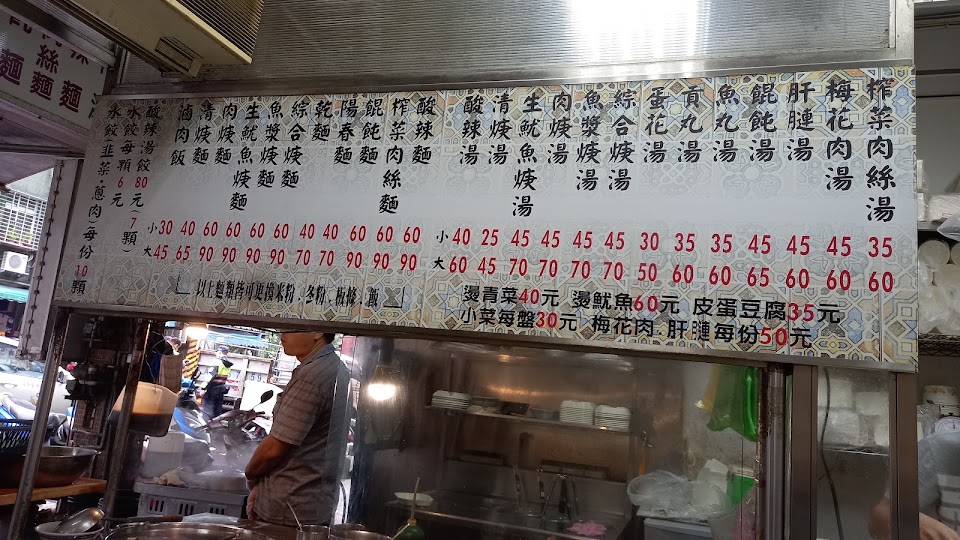 榨菜肉絲湯
梅花肉湯
肝䐑湯
餛飩湯
魚丸湯
貢丸湯
蛋花湯
綜合焿湯
魚漿焿湯
肉焿湯
生魷魚焿湯
清焿湯
酸辣湯
小 40 25 45 45 45 45 30 35 35 45 45 45 35
大 60 45 70 70 70 70 50 60 60 65 65 60 60
燙青菜40元 燙魷魚60元 皮蛋豆腐35元
小菜每盤30元 梅花肉、肝䐑每份50元
酸辣麵
榨菜肉絲麵
餛飩麵
陽春麵
乾麵
綜合焿麵
魚焿麵
生魷魚焿麵
肉焿麵
清焿麵
滷肉飯
小 30 40 60 60 60 60 40 40 60 60 60
大 45 65 90 90 90 90 70 70 90 90 90
以上麵類皆可更換米粉、冬粉、板條、飯
酸辣湯餃80元(7顆)
水餃每顆6元
水餃(韭菜、蔥肉)每份10顆
絲麵
麵
麵